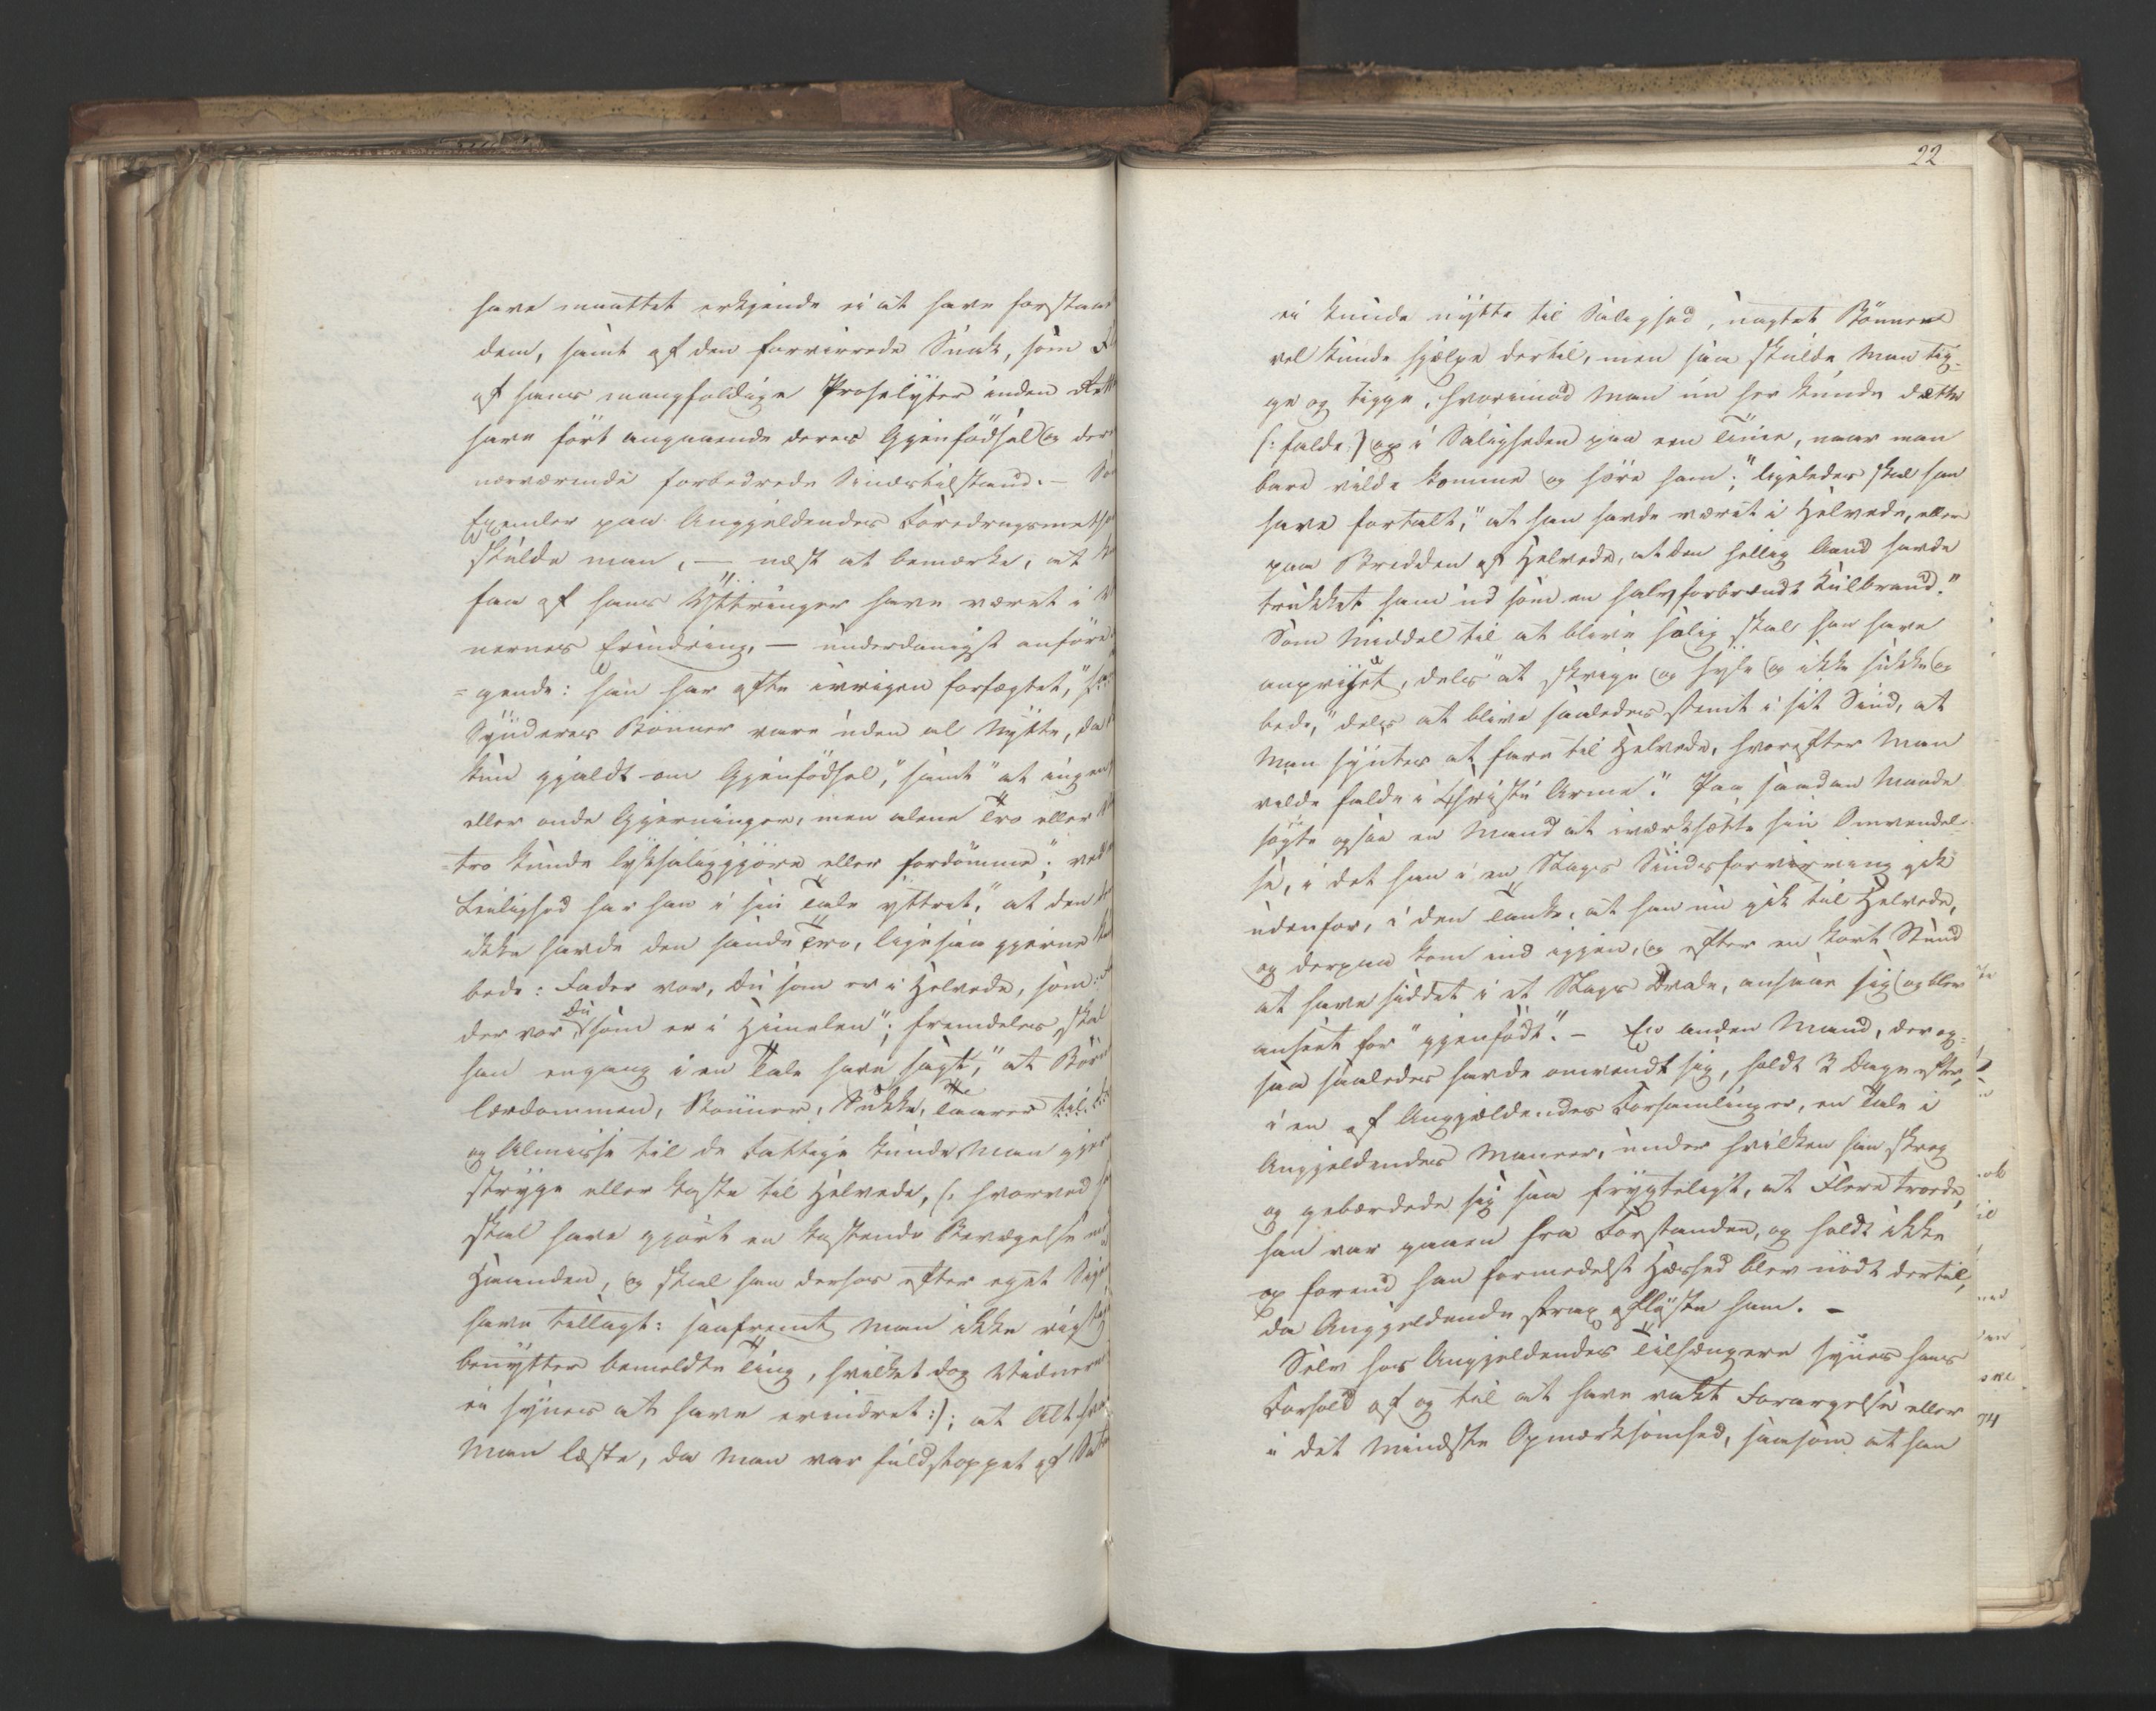 have maattet erkjende ei at have forstaa
dem, samt af den forvirrede Snak, som
af hans mangfoldige Proselyter inden
have fört angaaende deres Gjenfödsel og der
nærværende forbedrede Sindstilstand. –
Exemler paa Angjeldendes Foredragsmeth
skulde man, — næst at bemærke, at
faa af hans Yttringer have været i
nernes Erindring, — underdanigst anföre
=gende: han har ofte ivrigen forfægtet, "
Synderes Bönner vare uden al Nytte, da
kun gjaldt om Gjenfödsel," samt "at ingen
eller onde Gjerninger, men alene Tro eller
=tro kunde lyksaliggjöre eller fordömme"; ved
Leilighed har han i sin Tale yttret, "at den
ikke havde den sande Tro, ligesaa gjerne
bede: Fader vor, du som er i Helvede, som:
der vor Du som er i Himelen"; fremdeles skal
han engang i en Tale have sagt, "at Bör
lærdommen, Bönner, Sukke, Taarer
og Almisse til de Fattige kunde man gje
stryge eller kaste til Helvede, (: hvorved
skal have gjort en kastende Bevægelse
Haanden, og skal han derhos efter eget
have tillagt: saafremt man ikke
benytter bemeldte Ting, hvilket dog Vidner
ei synes at have erindret :); at Alt
Man læste, da man var fuldstoppet af
22
ei kunde nytte til Salighed, uagtet Bönnen
vel kunde hjælpe dertil, men saa skulde man tig=
ge og tigge, hvorimod man nu her kunde dætte
(: falde :) op i Saligheden paa een Time, naar man
bare vilde komme og höre ham"; ligeledes skal han
have fortalt, "at han havde været i Helvede, eller
paa Bredden af Helvede, at den hellig Aand havde
trukket ham ud som en halv forbrændt Kulbrand."
Som Middel til at blive salig skal han have
anpriset, dels "at skrige og hyle og ikke sukke og
bede," dels at blive saaledes stemt i sit Sind, at
man syntes at fare til Helvede, hvorefter Man
vilde falde i Christi Arme." Paa saadan Maade
sögte ogsaa en Mand at iværksætte sin Omvendel=
se, i det han i en Slags Sindsforvirring gik
udenfor, i den Tanke, at han nu gik til Helvede,
og derpaa kom ind igjen, og efter en kort Stund
at have siddet i et Slags Dvale, ansaae sig og blev
anseet for "gjenfödt". – En anden Mand, der og=
saa saaledes havde omvendt sig, holdt 3 Dage efter,
i en af Angjældendes Forsamlinger, en Tale i
Angjeldendes Maneer, under hvilken han skreg
og gebærdede sig saa frygteligt, at Flere troede,
han var gaaen fra Forstanden, og holdt ikke
op forend han formedelst Hæshed blev nödt dertil,
da Angjeldende strax aflöste ham. –
Selv hos Angjeldendes Tilhængere synes hans
Forhold af og til at have vakt Forargelse eller
i det mindste Opmærksomhed, saasom at han